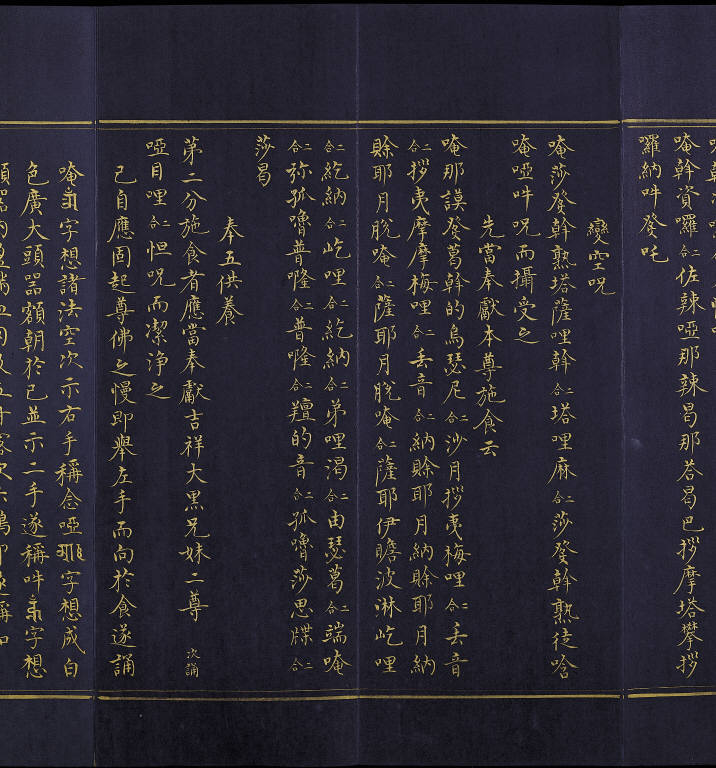 唵斡資囉二合佐辣啞那辣曷那荅曷巴拶摩塔攀拶
囉納吽癹吒
變空呪
唵莎癹斡熟塔薩哩斡二合塔哩麻二合莎癹斡熟徒唅
唵啞吽呪而攝受之
先當奉獻本尊施食云
唵那謨癹葛斡的烏瑟尼二合沙月拶夷梅哩二合丢音
二合拶夷摩摩梅哩二合丢音二合納賒耶月納賒耶月納
賒耶月脫唵二合薩耶月脫唵二合薩耶伊瞻波淋屹哩
二合紇納二合屹哩二合紇納二合弟哩渴二合由瑟葛二合端唵
二合祢孤嚕普隆二合普隆二合羶的音二合孤嚕莎思牒二合
莎曷
奉五供養
第二分施食者應當奉獻吉祥大黑兄妹二尊 次誦
啞目哩二合怛呪而潔淨之
己自應固起尊佛之慢即舉左手而向於食遂誦
唵字想諸法空次示右手稱念啞字想成白
色廣大頭器額朝於己並示二手遂稱吽字想